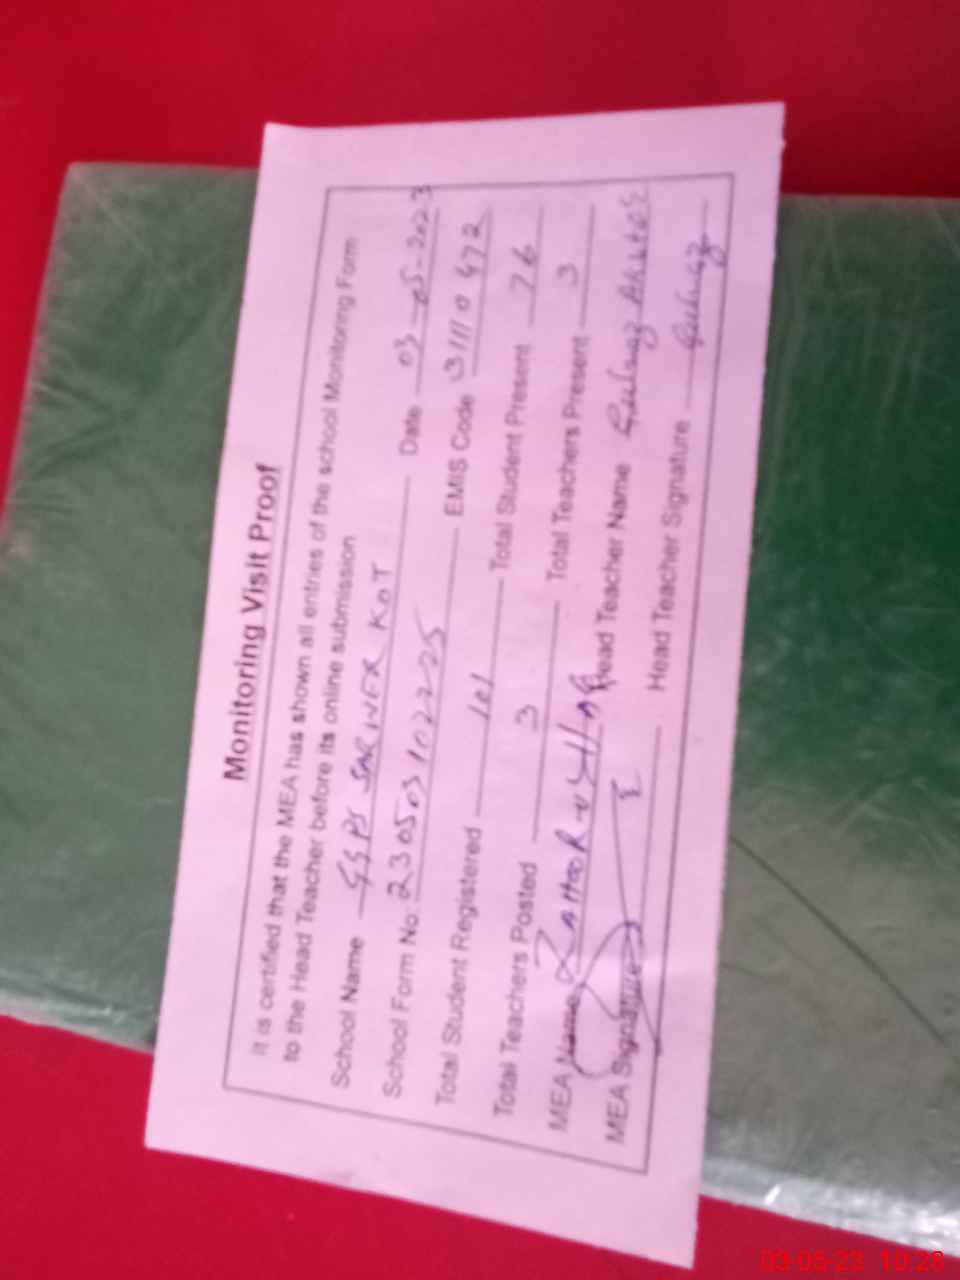 Monitoring Visit Proof
It is certified that the MEA has shown all entries of the school Monitoring Form
to the Head Teacher before its online submission
School Name GGPS SARWER KOT Date 03-05-2023
School Form No: 23050310225 EMIS Code 31110472
Total Student Registered 101 Total Student Present 76
Total Teachers Posted 3 Total Teachers Present 3
MEA Name ZAHOOR-UL-HAQ Head Teacher Name Gulnaz Akhtar
MEA Signature Head Teacher Signature Gulnaz
03-05-23 10:28